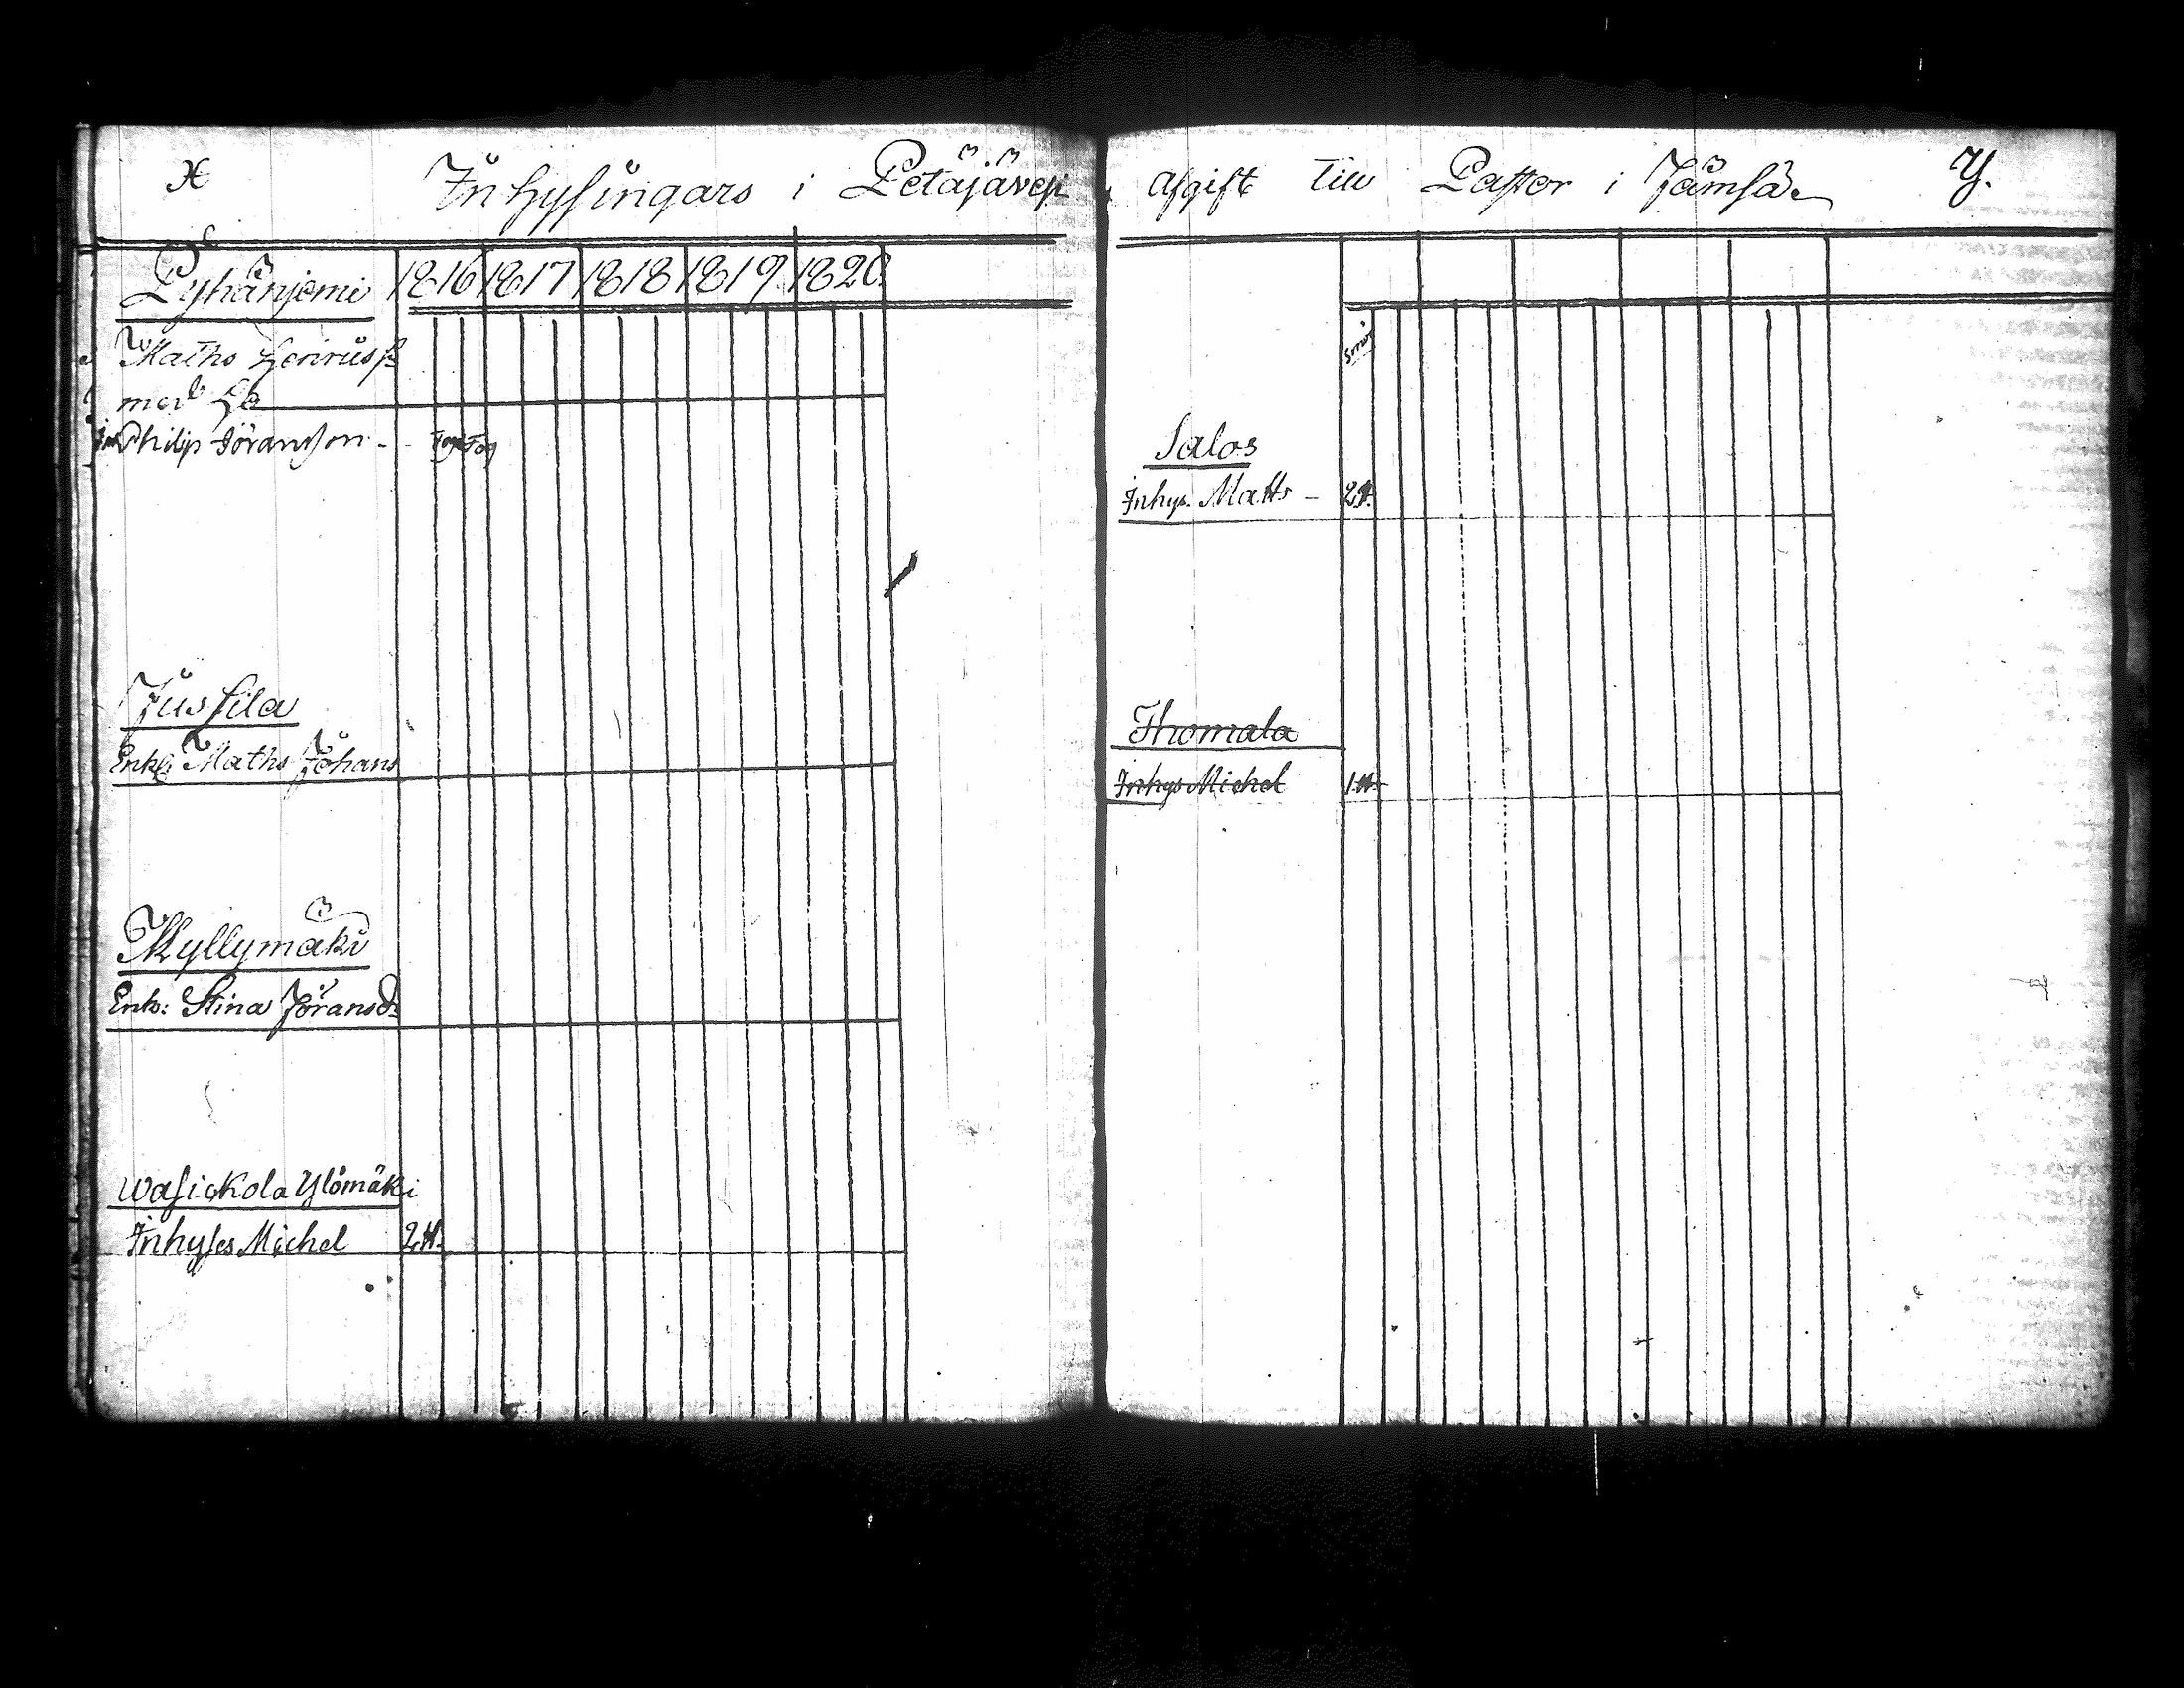 X
Inhysingars i Petäjävesi
Pyhänjemi 1816 1817 1818 1819 1820
Maths Henrikss
med
Inh Philip Jöransson
Jussila
Enkl: Maths Johans
Kyllymäki
Enk: Stina Jöransd:
Wasickola Ylömäki
Inhyses Michel 2 tt.
afgift till Pastor i Jämsä Y.
smör
Salos
Inhys. Matts – 2 tt.
Thomala
Inhys Michel 1 tt.